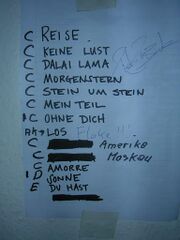 C REISE.
C KEINE LUST
C DALAI LAMA
C MORGENSTERN
C STEIN UM STEIN
C MEIN TEIL
C OHNE DICH
LOS Flake!!!
C Amerika
C Moskau
C AMORRE
D SONNE
E DU HAST